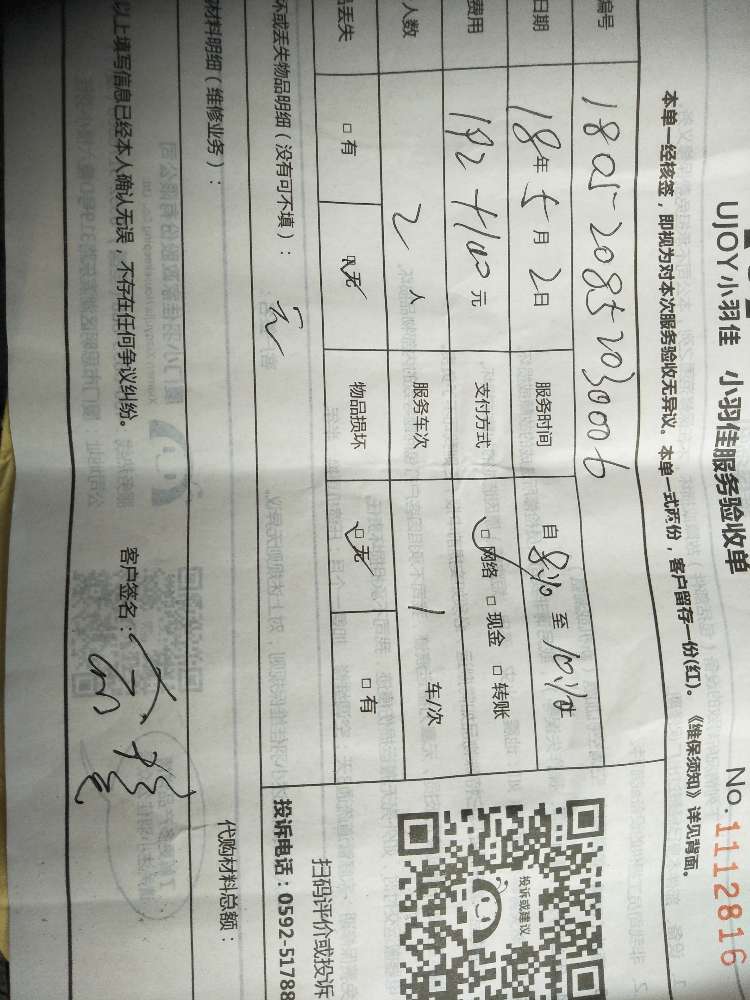 UJOY小羽佳 小羽佳服务验收单
No.1112816
本单一经核签，即视为对本次服务验收无异议。本单一式两份，客户留存一份(红)。《维保须知》详见背面。
编号 180520852030006
日期 18年5月2日 服务时间 自 8:10 至 10:10
费用 元 支付方式 ☑网络 □现金 □转账
人数 2人 服务车次 1 车/次
品丢失 □有 ☑无 物品损坏 ☑无 □有
坏或丢失物品明细（没有可不填）： 无
投诉或建议
扫码评价或投诉
投诉电话：0592-51788
材料明细（维修业务）：
代购材料总额：
以上填写信息已经本人确认无误，不存在任何争议纠纷。
客户签名：